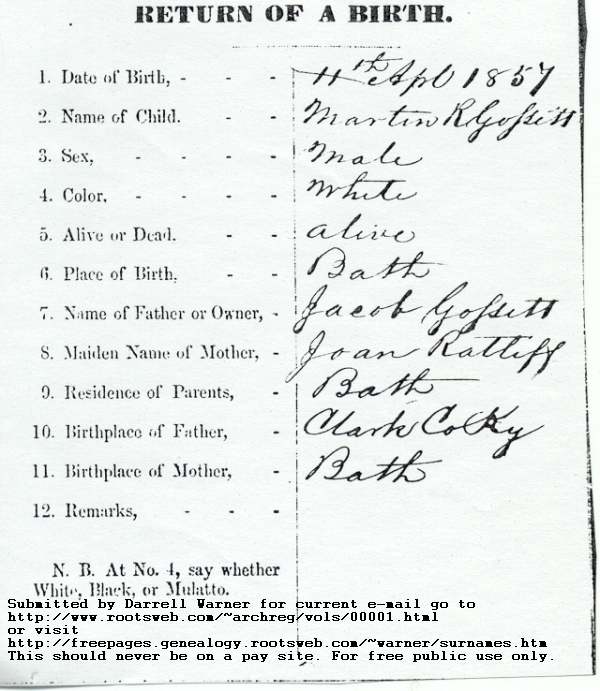 RETURN OF A BIRTH.
1. Date of Birth, - - - 11th Apl 1857
2. Name of Child. - - Martin R Gossett
3. Sex, - - - - Male
4. Color, - - - - White
5. Alive or Dead. - - alive
6. Place of Birth, - - Bath
7. Name of Father or Owner, - Jacob Gossett
8. Maiden Name of Mother, - Joan Ratliff
9. Residence of Parents, - Bath
10. Birthplace of Father, - Clark Co Ky
11. Birthplace of Mother, - Bath
12. Remarks, - - -
N. B. At No. 4, say whether
White, Black, or Mulatto.
Submitted by Darrell Warner for current e-mail go to
http://www.rootsweb.com/~archreg/vols/00001.html
or visit
http://freepages.genealogy.rootsweb.com/~warner/surnames.htm
This should never be on a pay site. For free public use only.